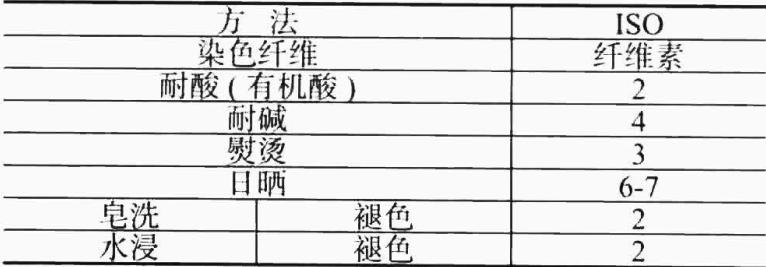 方 法 ISO
染色纤维 纤维素
耐酸 ( 有机酸 ) 2
耐碱 4
熨烫 3
日晒 6-7
皂洗 褪色 2
水浸 褪色 2